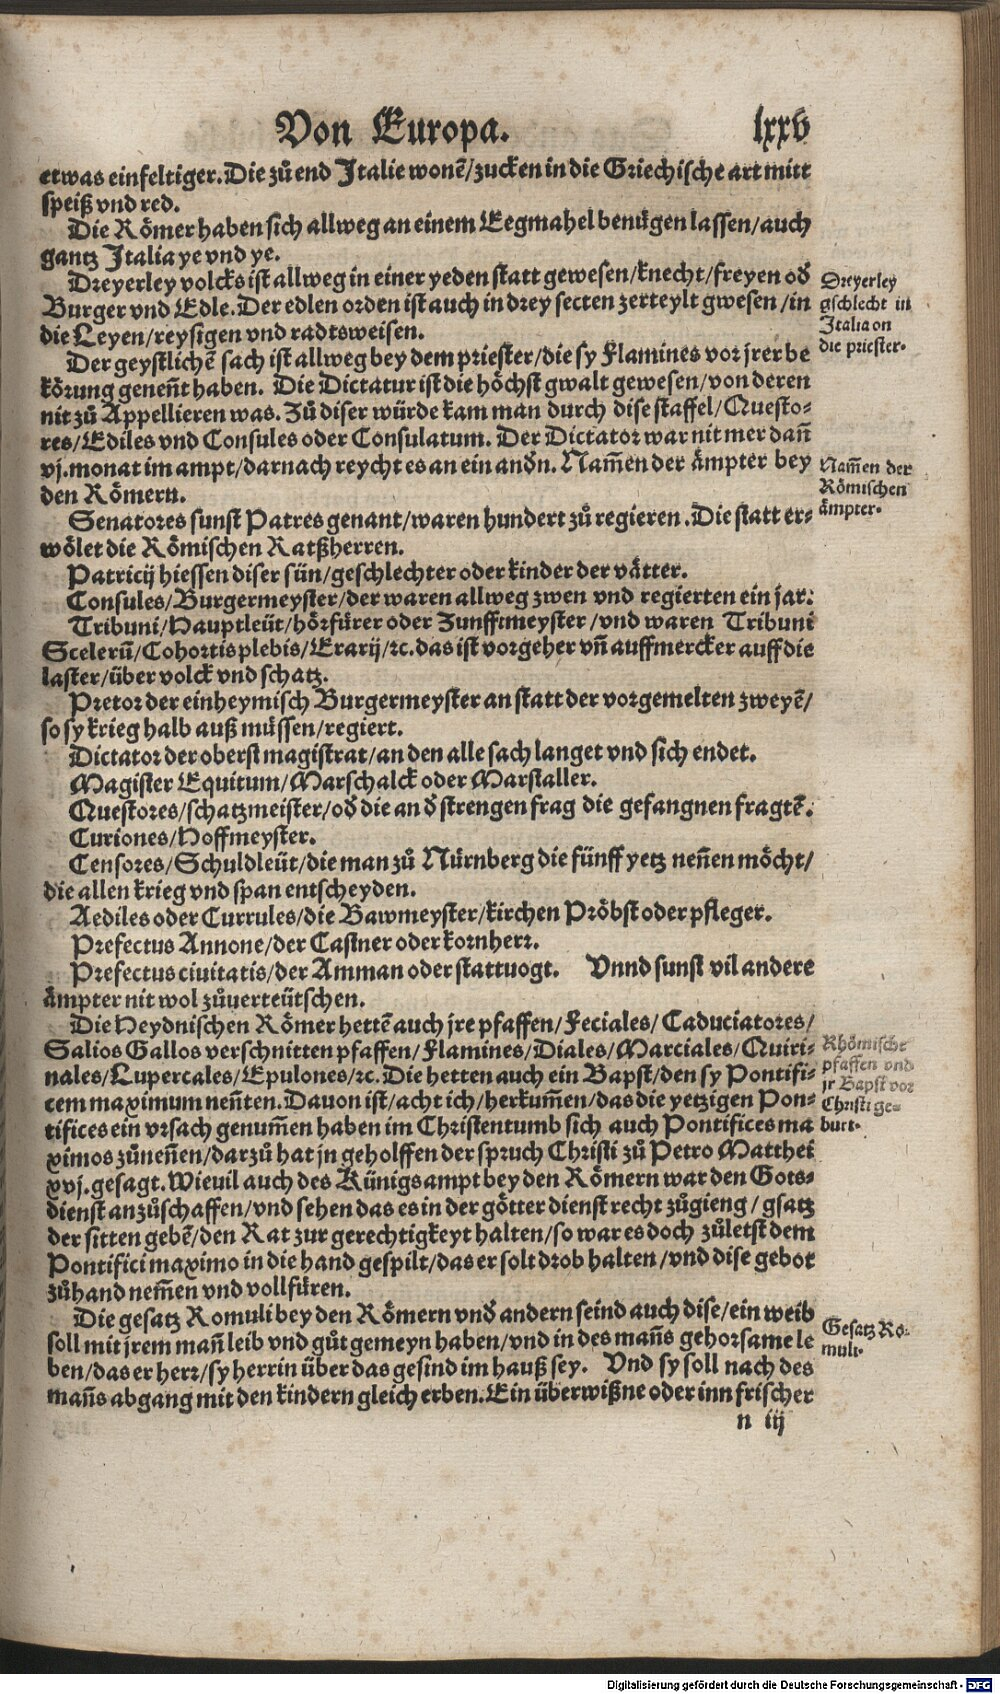 Von Europa. lxxv
etwas einfeltiger. Die zů end Italie wonẽ/zucken in die Griechische art mitt
speiß vnd red.
Die Römer haben sich allweg an einem Eegmahel benügen lassen/auch
gantz Italia ye vnd ye.
Dreyerley volcks ist allweg in einer yeden statt gewesen/knecht/freyen oď
Burger vnd Edle. Der edlen orden ist auch in drey secten zerteylt gwesen/in
die Leyen/reysigen vnd radtsweisen.
Dreyerley
gschlecht in
Italia on
die priester.
Der geystlichẽ sach ist allweg bey dem priester/die sy Flamines vor jrer be
körung geneñt haben. Die Dictatur ist die höchst gwalt gewesen/von deren
nit zů Appellieren was. Zů diser würde kam man durch dise staffel/Questo-
res/Ediles vnd Consules oder Consulatum. Der Dictator war nit mer dañ
vj. monat im ampt/darnach reycht es an ein anďn. Nam̃en der ämpter bey
den Römern.
Nam̃en der
Römischen
ämpter.
Senatores sunst Patres genant/waren hundert zů regieren. Die statt er-
wölet die Römischen Ratßherren.
Patricij hiessen diser sün/geschlechter oder kinder der vätter.
Consules/Burgermeyster/der waren allweg zwen vnd regierten ein jar.
Tribuni/Hauptleüt/hörfürer oder Zunfftmeyster/vnd waren Tribuni
Scelerũ/Cohortis plebis/Erarij/ꝛc. das ist vorgeher vñ auffmercker auff die
laster/über volck vnd schatz.
Pretor der einheymisch Burgermeyster an statt der vorgemelten zweyẽ/
so sy krieg halb auß müssen/regiert.
Dictator der oberst magistrat/an den alle sach langet vnd sich endet.
Magister Equitum/Marschalck oder Marstaller.
Questores/schatzmeister/oď die an ď strengen frag die gefangnen fragtẽ.
Curiones/Hoffmeyster.
Censores/Schuldleüt/die man zů Nürnberg die fünff yetz neñen möcht/
die allen krieg vnd span entscheyden.
Aediles oder Currules/die Bawmeyster/kirchen Pröbst oder pfleger.
Prefectus Annone/der Castner oder kornherr.
Prefectus ciuitatis/der Amman oder stattuogt. Vnnd sunst vil andere
ämpter nit wol zůuerteütschen.
Die Heydnischen Römer hettẽ auch jre pfaffen/Feciales/Caduciatores/
Salios Gallos verschnitten pfaffen/Flamines/Diales/Marciales/Quiri-
nales/Lupercales/Epulones/ꝛc. Die hetten auch ein Bapst/den sy Pontifi-
cem maximum neñten. Dauon ist/acht ich/herkum̃en/das die yetzigen Pon-
tifices ein vrsach genum̃en haben im Christentumb sich auch Pontifices ma
ximos zůneñen/darzů hat jn geholffen der spruch Christi zů Petro Matthei
xvj. gesagt. Wieuil auch des Künigs ampt bey den Römern war den Gots-
dienst anzůschaffen/vnd sehen das es in der götter dienst recht zůgieng/gsatz
der sitten gebẽ/den Rat zur gerechtigkeyt halten/so war es doch zůletst dem
Pontifici maximo in die hand gespilt/das er solt drob halten/vnd dise gebot
zůhand nem̃en vnd vollfüren.
Rhömische
pfaffen vnd
jr Bapst vor
Christi ge-
burt.
Die gesatz Romuli bey den Römern vnď andern seind auch dise/ein weib
soll mit jrem mañ leib vnd gůt gemeyn haben/vnd in des mañs gehorsame le
ben/das er herr/sy herrin über das gesind im hauß sey. Vnd sy soll nach des
mañs abgang mit den kindern gleich erben. Ein überwißne oder inn frischer
Gesatz Ro-
muli.
n iij
Digitalisierung gefördert durch die Deutsche Forschungsgemeinschaft - DFG